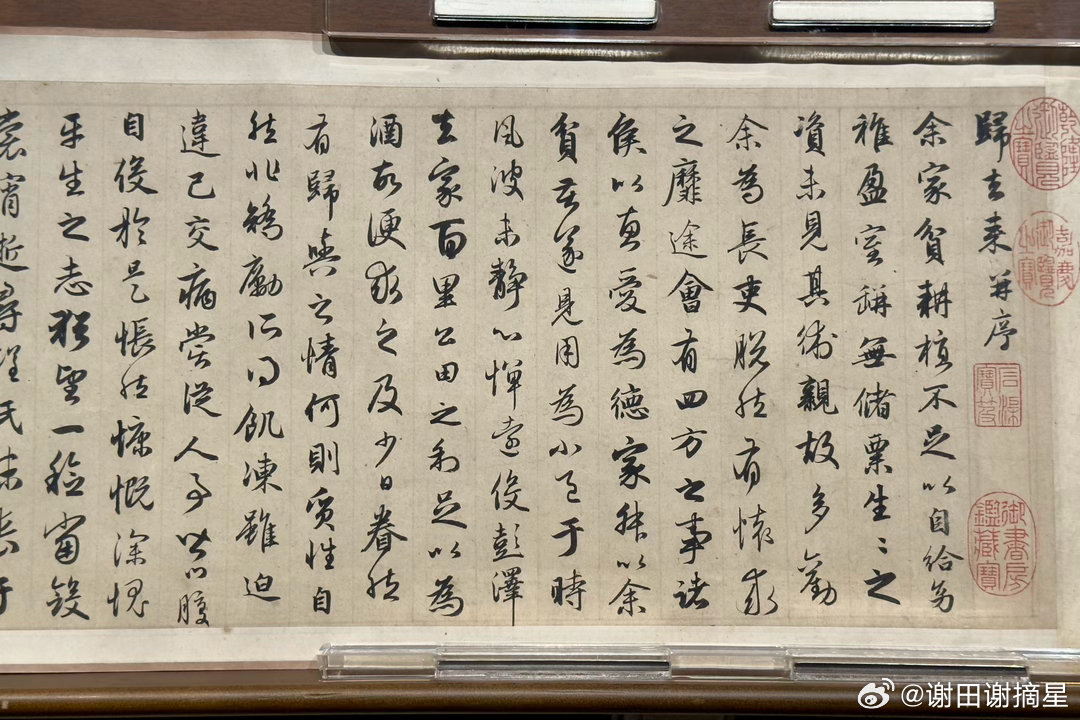 乾隆御覽之寶
嘉慶御覽之寶
石渠寶笈
御書房鑑藏寶
歸去來并序
余家貧耕植不足以自給幼
稚盈室缾無儲粟生〻之
資未見其術親故多勸
余為長吏脫然有懷求
之靡途會有四方之事諸
侯以惠愛為德家叔以余
貧苦遂見用為小邑于時
風波未靜心憚遠役彭澤
去家百里公田之利足以為
酒故便求之及少日眷然
有歸歟之情何則質性自
然非矯勵所得飢凍雖迫
違己交病嘗從人事皆口腹
自役於是悵然慷慨深愧
平生之志猶望一稔當斂
裳宵逝尋程氏妹喪于
@谢田谢摘星